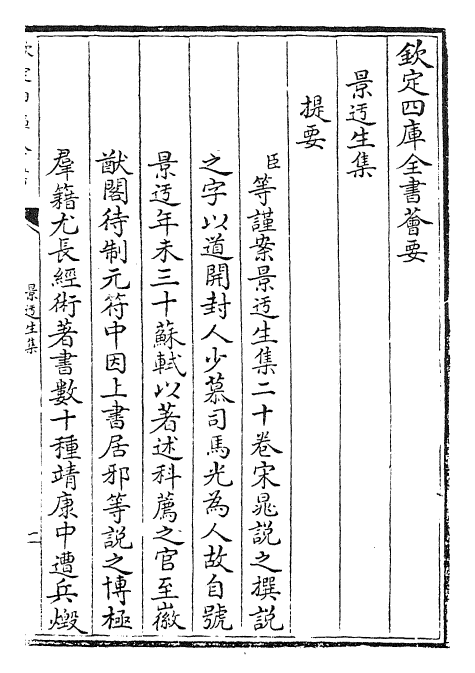 欽定四庫全書薈要
景迃生集
提要
臣等謹案景迃生集二十卷宋晁説之撰説
之字以道開封人少慕司馬光為人故自號
景迃年未三十蘇軾以著述科薦之官至徽
猷閣待制元符中因上書居邪等説之博極
羣籍尤長經術著書數十種靖康中遭兵燬
景迃生集